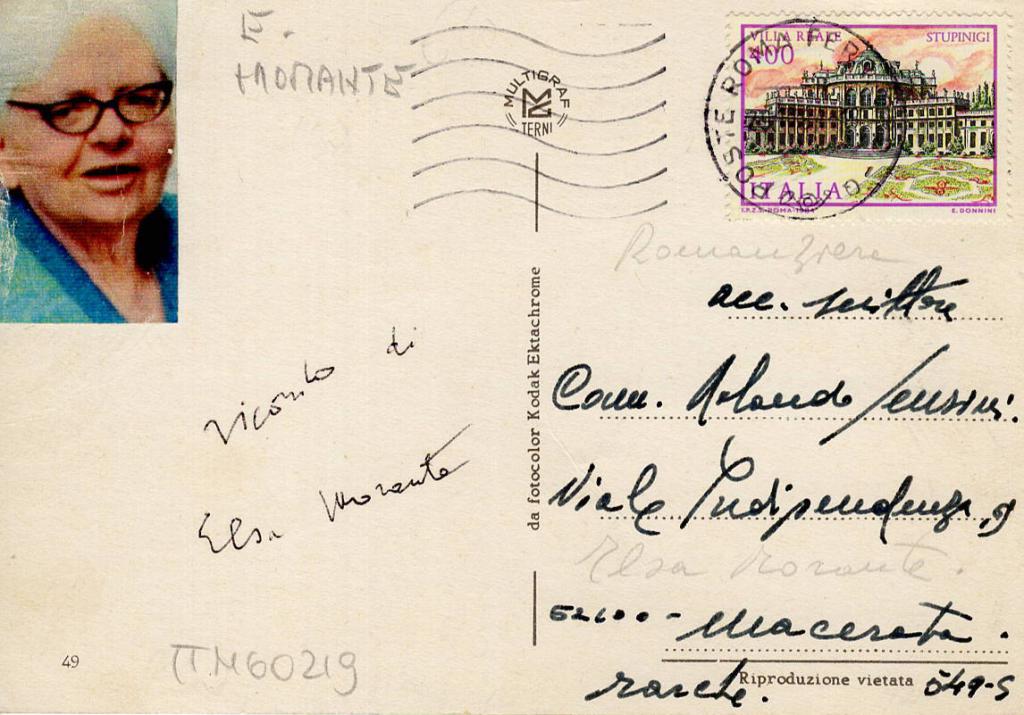 E.
MORANTE
MULTIGRAF
TERNI
VILLA REALE STUPINIGI
400
POSTE ROMA FER
ITALIA
I.P.Z.S. ROMA 1984 E. DONNINI
Romanziera
acc. scrittore
Comm. Rolando Sensini.
Viale Indipendenza, 9
Elsa Morante.
62100 - Macerata.
Marche.
ricordo di
Elsa Morante
da fotocolor Kodak Ektachrome
49
ITM60219
Riproduzione vietata 549-S